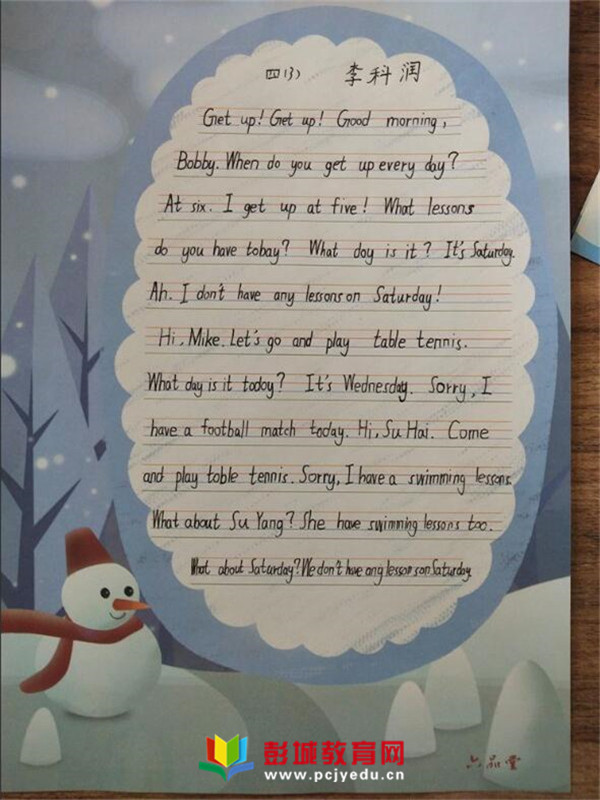 四(3) 李科润
Get up! Get up! Good morning,
Bobby. When do you get up every day?
At six. I get up at five! What lessons
do you have tobay? What day is it? It's Saturday.
Ah. I don't have any lessons on Saturday!
Hi, Mike. Let's go and play table tennis.
What day is it today? It's Wednesday. Sorry, I
have a football match today. Hi, Su Hai. Come
and play table tennis. Sorry, I have a swimming lessons.
What about Su Yang? She have swimming lessons too.
What about Saturday? We don't have any lessons on Saturday.
彭城教育网
www.pcjyedu.cn
六品堂